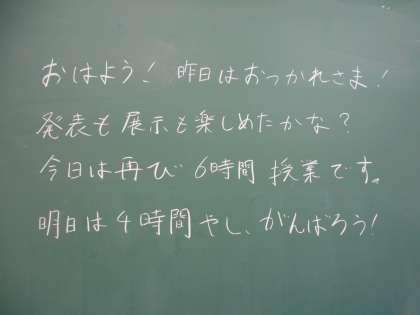 おはよう! 昨日はおつかれさま!
発表も展示も楽しめたかな?
今日は再び6時間授業です。
明日は4時間やし、がんばろう!